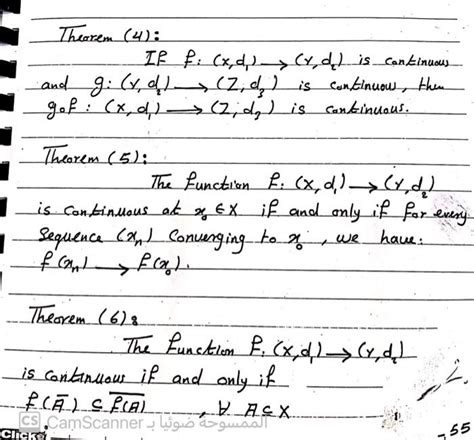 Theorem (4):
If f: (X,d₁) → (Y,d₂) is continuous
and g: (Y,d₂) → (Z,d₃) is continuous, then
gof : (X,d₁) → (Z,d₃) is continuous.
Theorem (5):
The function f: (X,d₁) → (Y,d₂)
is continuous at x₀ ∈ X if and only if for every
sequence (xₙ) converging to x₀, we have:
f(xₙ) → f(x₀).
Theorem (6):
The function f: (X,d₁) → (Y,d₂)
is continuous if and only if
f(A̅) ⊆ \overline{f(A)} , ∀ A ⊆ X
CS CamScanner الممسوحة ضوئيا بـ
55